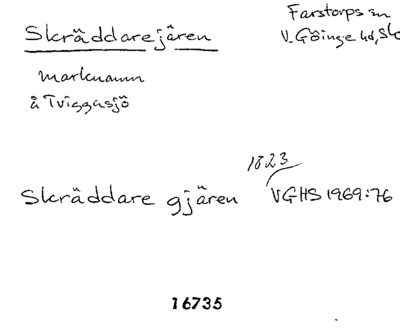 Skräddarejären
Farstorps sn
V. Göinge hd, Sk
marknamn
å Tviggasjö
1823
Skräddare gjären VGHS 1969:76
16735